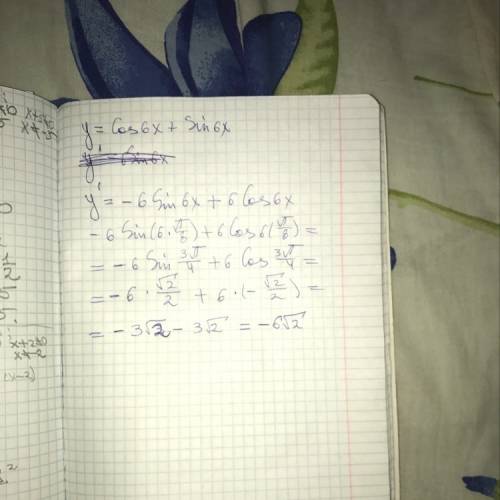 y = Cos6x + Sin6x
y' = -6Sin6x + 6Cos6x
-6Sin(6·π/8) + 6Cos6(π/8) =
= -6Sin 3π/4 + 6Cos 3π/4 =
= -6 · √2/2 + 6·(-√2/2) =
= -3√2 - 3√2 = -6√2
x+2≠0
x≠-2
(x-2)